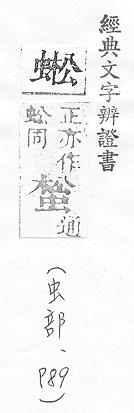 經典文字辨證書
蜙
正亦作
蚣同
通
(虫部、P89)